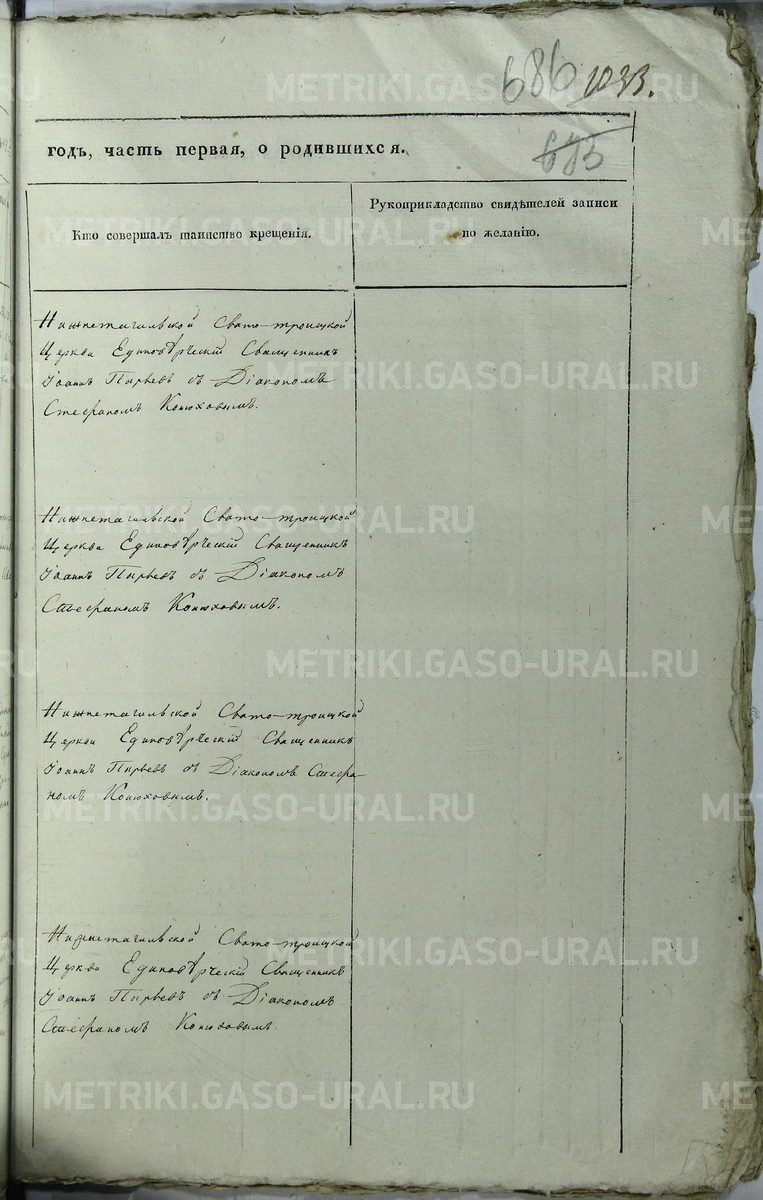 686 1033.
683
годъ, часть первая, о родившихся.
Кто совершалъ таинство крещенія.
Рукоприкладство свидѣтелей записи
по желанію.
Нижнетагильской Свято-троицкой
Церкви Единовѣрческій Священникъ
Іоаннъ Пырьевъ съ Діакономъ
Стефаномъ Конюховымъ.
Нижнетагильской Свято-троицкой
Церкви Единовѣрческій Священникъ
Іоаннъ Пырьевъ съ Діакономъ
Стефаномъ Конюховымъ.
Нижнетагильской Свято-троицкой
Церкви Единовѣрческій Священникъ
Іоаннъ Пырьевъ съ Діакономъ Стефа-
номъ Конюховымъ.
Нижнетагильской Свято-троицкой
Церкви Единовѣрческій Священникъ
Іоаннъ Пырьевъ съ Діакономъ
Стефаномъ Конюховымъ.
METRIKI.GASO-URAL.RU